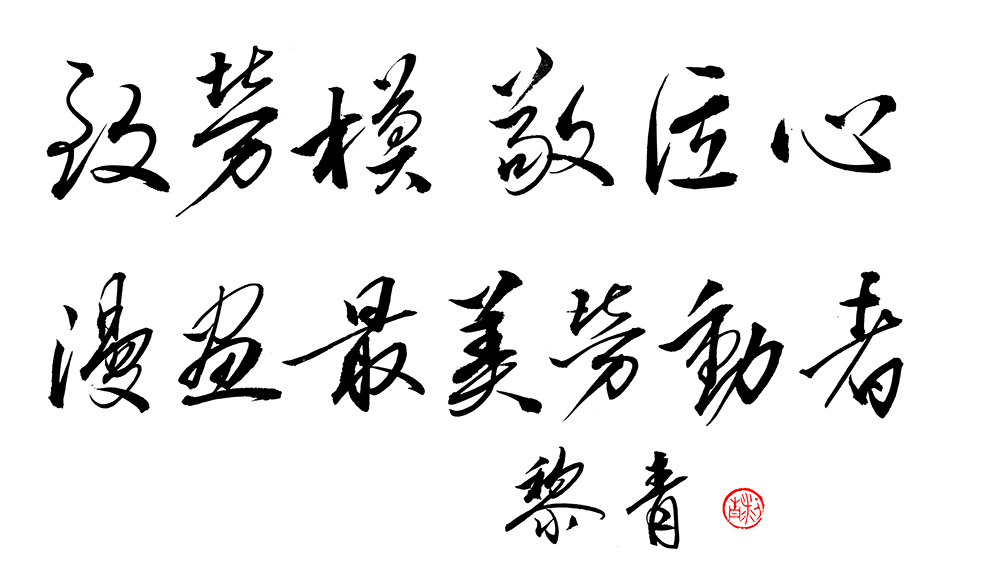 致劳模 敬匠心
漫画最美劳動者
黎青